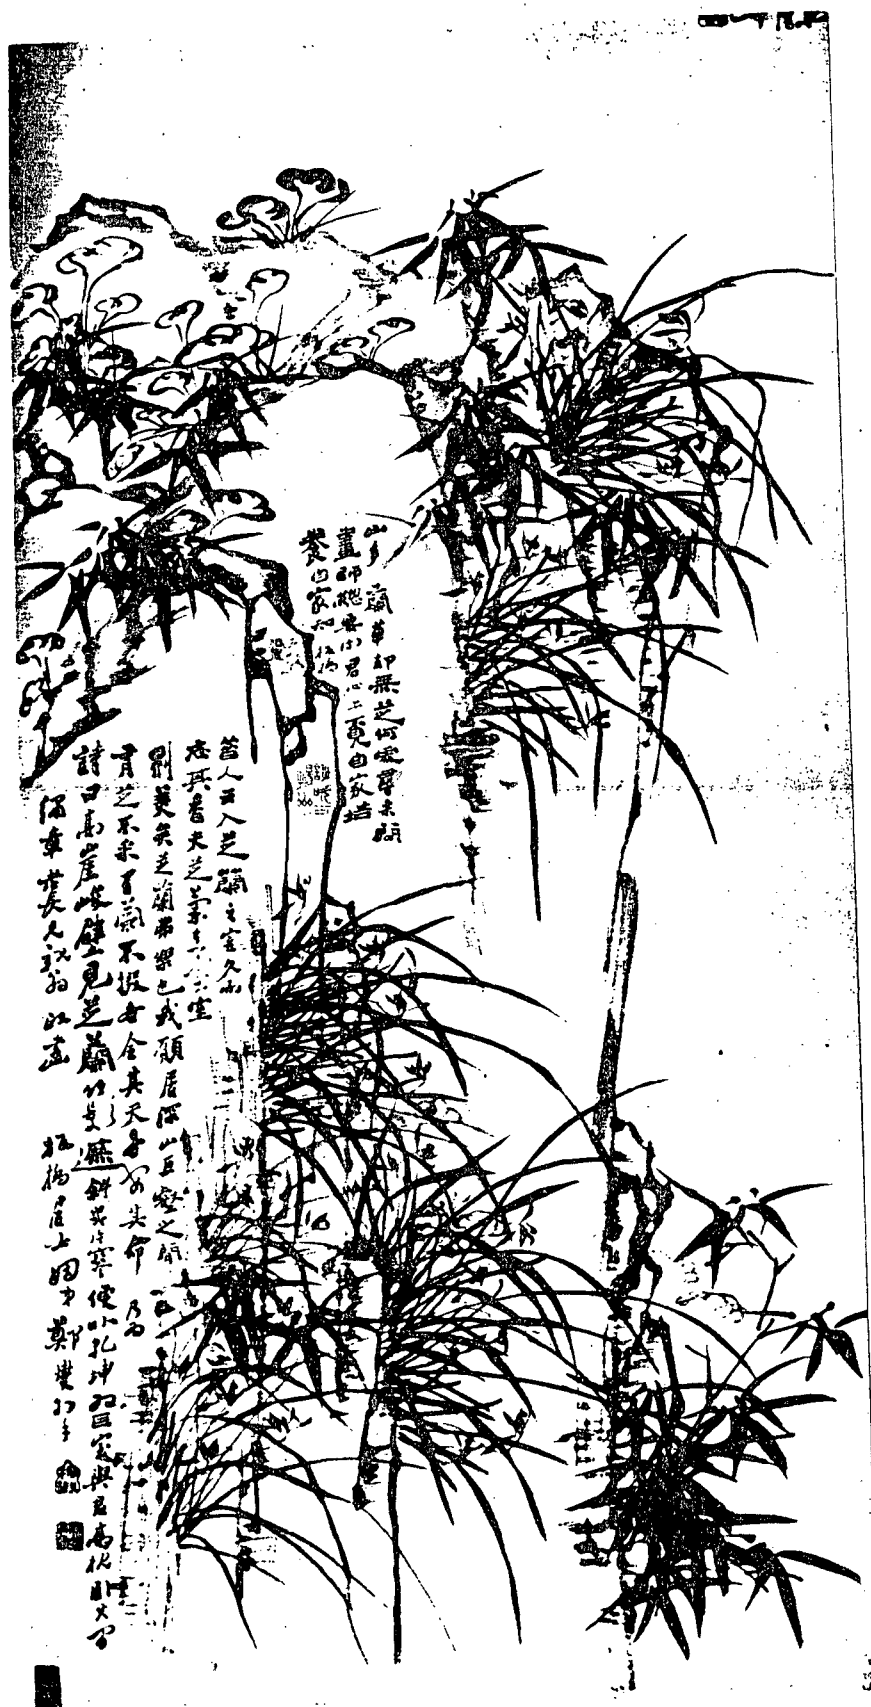 山多蘭草却無芝何處尋來問
畫師總要向君心上覓自家培
養自家知 板橋
昔人云入芝蘭之室久而
忘其香夫芝蘭入室
則美矣芝蘭弗樂也我願居深山巨壑之間
有芝不采有蘭不掇各全其天各安其命乃為
詩曰高崖峻壁見芝蘭竹影遮斜幾片寒便以乾坤為巨室與君高枕卧其間
板橋居士鄭燮